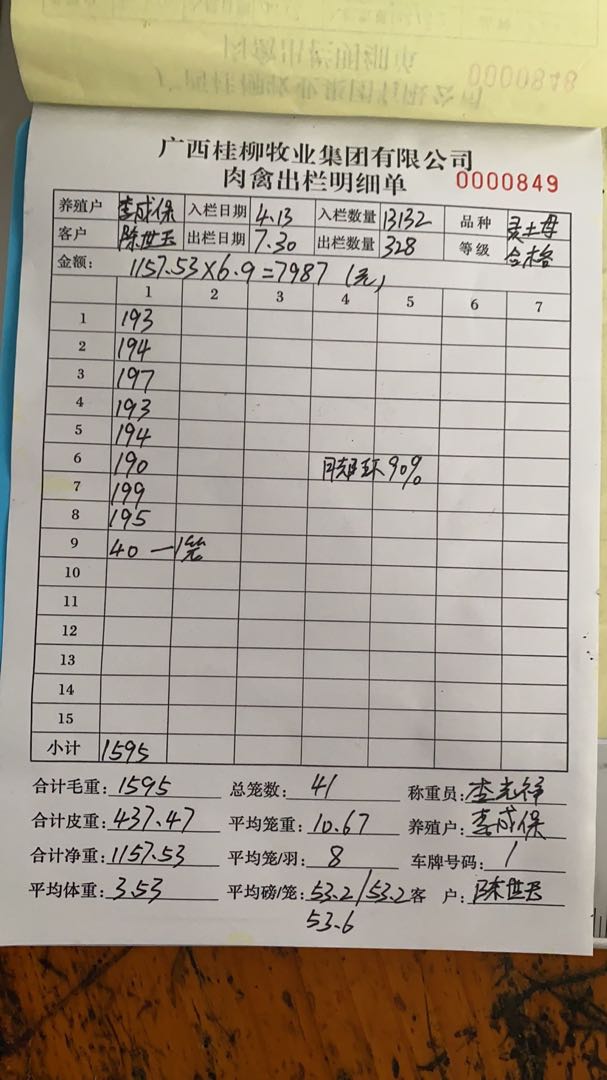 0000848
广西桂柳牧业集团有限公司
肉禽出栏明细单 0000849
养殖户 李成保 入栏日期 4.13 入栏数量 13132 品种 灵土母
客户 陈世玉 出栏日期 7.30 出栏数量 328 等级 合格
金额: 1157.53×6.9=7987（元）
1 2 3 4 5 6 7
1 193
2 194
3 197
4 193
5 194
6 190 90%
7 199
8 195
9 40 一1笼
10
11
12
13
14
15
小计 1595
合计毛重: 1595 总笼数: 41 称重员: 李光祥
合计皮重: 437.47 平均笼重: 10.67 养殖户: 李成保
合计净重: 1157.53 平均笼/羽: 8 车牌号码: 1
平均体重: 3.53 平均磅/笼: 53.2/53.2 客 户: 陈世玉
53.6